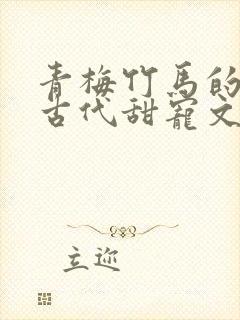 青梅竹马的
古代甜宠文
立迩